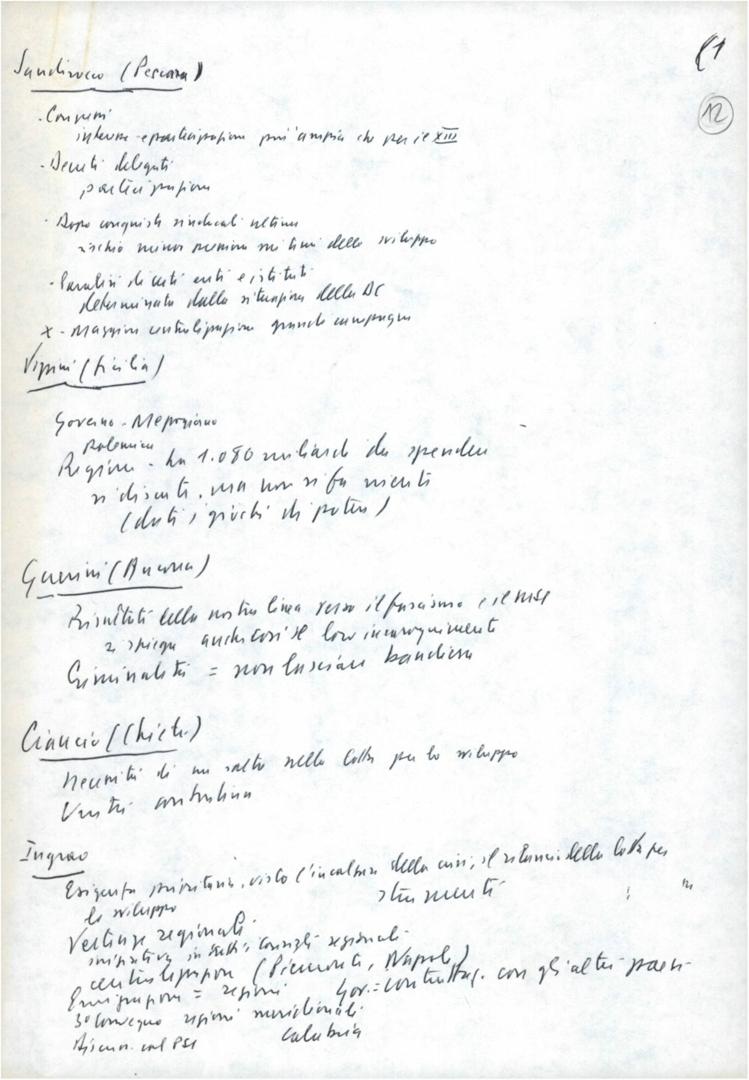 81
12
Sandirocco (Pescara)
- Congressi
interesse e partecipazione più ampia che per il XIII
- Decreti delegati
partecipazione
- Dopo conquiste sindacali ultime
rischio minor tensione sui temi dello sviluppo
- Paralisi di certi enti e istituti
determinata dalla situazione della DC
x - Maggiore centralizzazione grande campagna
Vizzini (Sicilia)
Governo - Mezzogiorno
Polemica
Regione - ha 1.080 miliardi da spendere
si discute, ma non si fa niente
(dati i giochi di potere)
Guerrini (Ancona)
Risultati della nostra linea verso il fascismo e il MSI
si spiega anche così il loro
Criminalità = non lasciare bandiera
Ciancio (Chieti)
Necessità di un salto nella lotta per lo sviluppo
Unità contadina
Ingrao
Esigenza prioritaria, visto l'incalzare della crisi, il rilancio della lotta per
lo sviluppo strumenti
Vertenze regionali
iniziativa in tutti i consigli regionali
centralizzazione (Piemonte, Napoli)
Emigrazione = regioni Gov. = contrattaz. con gli altri paesi
3º Convegno regioni meridionali
Discuss. col PSI Calabria